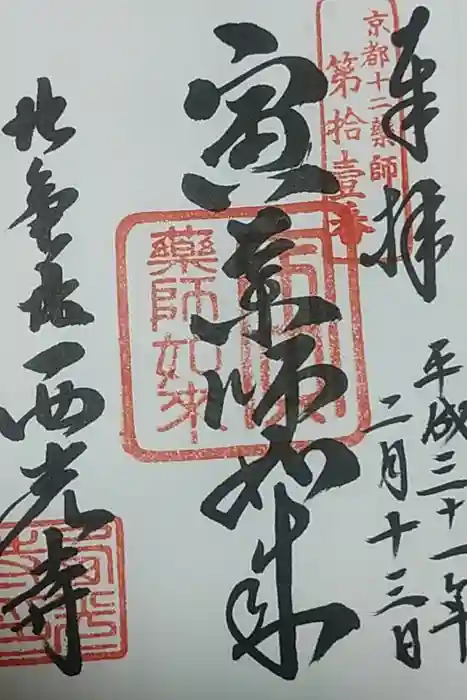 奉拝
平成三十一年
二月十三日
京都十二藥師
第拾壹番
寅薬師如来
藥師如来
西光寺